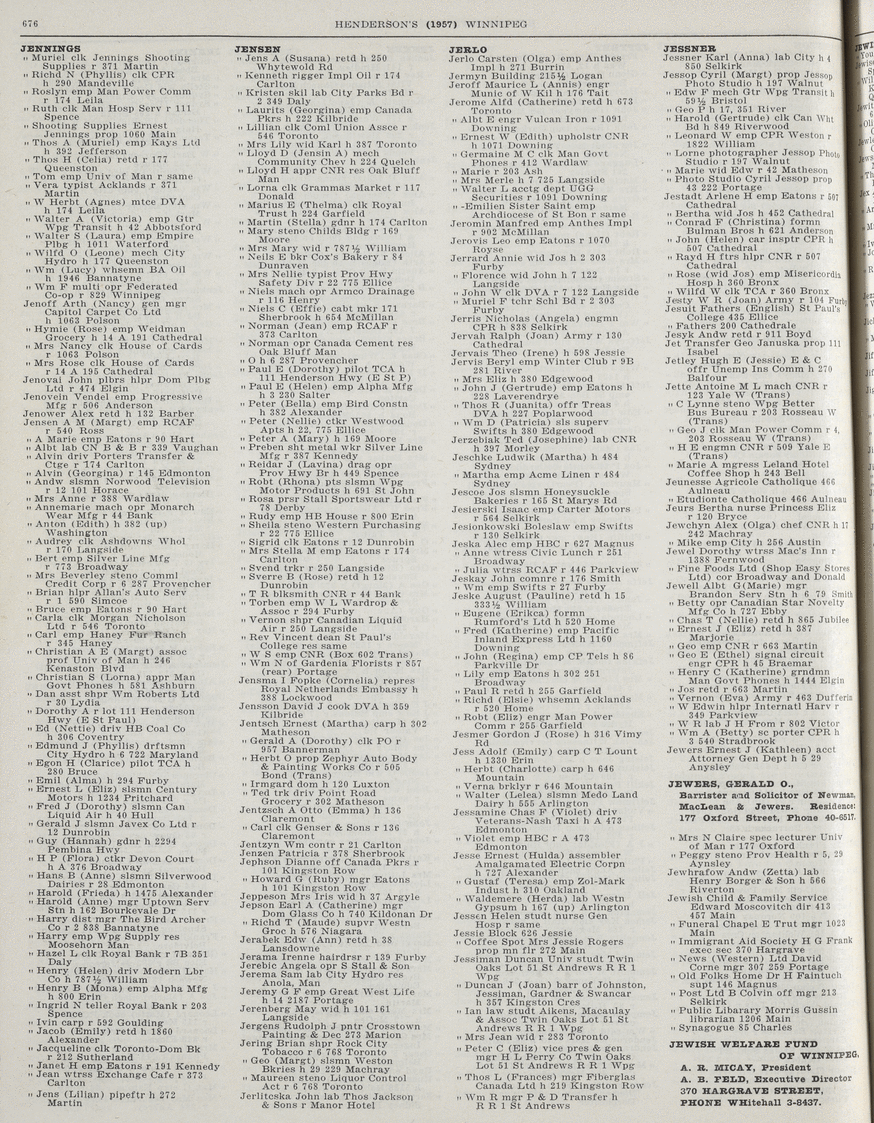 676
HENDERSON'S (1957) WINNIPEG
JENNINGS
" Muriel clk Jennings Shooting
Supplies r 371 Martin
" Richd N (Phyllis) clk CPR
h 290 Mandeville
" Roslyn emp Man Power Comm
r 174 Leila
" Ruth clk Man Hosp Serv r 111
Spence
" Shooting Supplies Ernest
Jennings prop 1060 Main
" Thos A (Muriel) emp Kays Ltd
h 392 Jefferson
" Thos H (Celia) retd r 177
Queenston
" Tom emp Univ of Man r same
" Vera typist Acklands r 371
Martin
" W Herbt (Agnes) mtce DVA
h 174 Leila
" Walter A (Victoria) emp Gtr
Wpg Transit h 42 Abbotsford
" Walter S (Laura) emp Empire
Plbg h 1011 Waterford
" Wilfd O (Leone) mech City
Hydro h 177 Queenston
" Wm (Lucy) whsemn BA Oil
h 1946 Bannatyne
" Wm F multi opr Federated
Co-op r 829 Winnipeg
Jenoff Arth (Nancy) gen mgr
Capitol Carpet Co Ltd
h 1063 Polson
" Hymie (Rose) emp Weidman
Grocery h 14 A 191 Cathedral
" Mrs Nancy clk House of Cards
r 1063 Polson
" Mrs Rose clk House of Cards
r 14 A 195 Cathedral
Jenoval John plbrs hlpr Dom Plbg
Ltd r 474 Elgin
Jenovein Vendel emp Progressive
Mfg r 506 Anderson
Jenower Alex retd h 132 Barber
Jensen A M (Margt) emp RCAF
r 540 Ross
" A Marie emp Eatons r 90 Hart
" Albt lab CN B & B r 339 Vaughan
" Alvin driv Porters Transfer &
Ctge r 174 Carlton
" Alvin (Georgina) r 145 Edmonton
" Andw slsmn Norwood Television
r 12 101 Horace
" Mrs Anne r 388 Wardlaw
" Annemarie mach opr Monarch
Wear Mfg r 44 Bank
" Anton (Edith) h 382 (up)
Washington
" Audrey clk Ashdowns Whol
r 170 Langside
" Bert emp Silver Line Mfg
r 773 Broadway
" Mrs Beverley steno Comml
Credit Corp r 6 287 Provencher
" Brian hlpr Allan's Auto Serv
r 1 590 Simcoe
" Bruce emp Eatons r 90 Hart
" Carla clk Morgan Nicholson
Ltd r 546 Toronto
" Carl emp Haney Fur Ranch
r 345 Haney
" Christian A E (Margt) assoc
prof Univ of Man h 246
Kenaston Blvd
" Christian S (Lorna) appr Man
Govt Phones h 581 Ashburn
" Dan asst shpr Wm Roberts Ltd
r 30 Lydia
" Dorothy A r lot 111 Henderson
Hwy (E St Paul)
" Ed (Nettie) driv HB Coal Co
h 306 Coventry
" Edmund J (Phyllis) drftsmn
City Hydro h 6 722 Maryland
" Egon H (Clarice) pilot TCA h
280 Bruce
" Emil (Alma) h 294 Furby
" Ernest L (Eliz) slsmn Century
Motors h 1234 Pritchard
" Fred J (Dorothy) slsmn Can
Liquid Air h 40 Hull
" Gerald J slsmn Javex Co Ltd r
12 Dunrobin
" Guy (Hannah) gdnr h 2294
Pembina Hwy
" H P (Flora) ctkr Devon Court
h A 376 Broadway
" Hans B (Anne) slsmn Silverwood
Dairies r 28 Edmonton
" Harold (Frieda) h 1475 Alexander
" Harold (Anne) mgr Uptown Serv
Stn h 162 Bourkevale Dr
" Harry dist mgr The Bird Archer
Co r 2 838 Bannatyne
" Harry emp Wpg Supply res
Moosehorn Man
" Hazel L clk Royal Bank r 7B 351
Daly
" Henry (Helen) driv Modern Lbr
Co h 787½ William
" Henry B (Mona) emp Alpha Mfg
h 800 Erin
" Ingrid N teller Royal Bank r 203
Spence
" Ivin carp r 592 Goulding
" Jacob (Emily) retd h 1860
Alexander
" Jacqueline clk Toronto-Dom Bk
r 212 Sutherland
" Janet H emp Eatons r 191 Kennedy
" Jean wtrss Exchange Cafe r 373
Carlton
" Jens (Lilian) pipeftr h 272
Martin
JENSEN
" Jens A (Susana) retd h 250
Whytewold Rd
" Kenneth rigger Impl Oil r 174
Carlton
" Kristen skil lab City Parks Bd r
2 349 Daly
" Laurits (Georgina) emp Canada
Pkrs h 222 Kilbride
" Lillian clk Coml Union Assce r
546 Toronto
" Mrs Lily wid Karl h 387 Toronto
" Lloyd D (Jensin A) mech
Community Chev h 224 Quelch
" Lloyd H appr CNR res Oak Bluff
Man
" Lorna clk Grammas Market r 117
Donald
" Marius E (Thelma) clk Royal
Trust h 224 Garfield
" Martin (Stella) gdnr h 174 Carlton
" Mary steno Childs Bldg r 169
Moore
" Mrs Mary wid r 787½ William
" Neils E bkr Cox's Bakery r 84
Dunraven
" Mrs Nellie typist Prov Hwy
Safety Div r 22 775 Ellice
" Niels mach opr Armco Drainage
r 116 Henry
" Niels C (Effie) cabt mkr 171
Sherbrook h 654 McMillan
" Norman (Jean) emp RCAF r
373 Carlton
" Norman opr Canada Cement res
Oak Bluff Man
" O h 6 287 Provencher
" Paul E (Dorothy) pilot TCA h
111 Henderson Hwy (E St P)
" Paul E (Helen) emp Alpha Mfg
h 3 230 Salter
" Peter (Bella) emp Bird Constn
h 382 Alexander
" Peter (Nellie) ctkr Westwood
Apts h 22, 775 Ellice
" Peter A (Mary) h 169 Moore
" Preben sht metal wkr Silver Line
Mfg r 387 Kennedy
" Reidar J (Lavina) drag opr
Prov Hwy Br h 449 Spence
" Robt (Rhona) pts slsmn Wpg
Motor Products h 691 St John
" Rosa prsr Stall Sportswear Ltd r
78 Derby
" Rudy emp HB House r 800 Erin
" Sheila steno Western Purchasing
r 22 775 Ellice
" Sigrid clk Eatons r 12 Dunrobin
" Mrs Stella M emp Eatons r 174
Carlton
" Svend trkr r 250 Langside
" Sverre B (Rose) retd h 12
Dunrobin
" T R blksmith CNR r 44 Bank
" Torben emp W L Wardrop &
Assoc r 294 Furby
" Vernon shpr Canadian Liquid
Air r 250 Langside
" Rev Vincent dean St Paul's
College res same
" W S emp CNR (Box 602 Trans)
" Wm N of Gardenia Florists r 857
(rear) Portage
Jensma I Fopke (Cornelia) repres
Royal Netherlands Embassy h
388 Lockwood
Jensson David J cook DVA h 359
Kilbride
Jentsch Ernest (Martha) carp h 302
Matheson
" Gerald A (Dorothy) clk PO r
957 Bannerman
" Herbt O prop Zephyr Auto Body
& Painting Works Co r 505
Bond (Trans)
" Irmgard dom h 120 Luxton
" Ted trk driv Point Road
Grocery r 302 Matheson
Jentzsch A Otto (Emma) h 136
Claremont
" Carl clk Genser & Sons r 136
Claremont
Jentzyn Wm contr r 21 Carlton
Jenzen Patricia r 378 Sherbrook
Jephson Dianne off Canada Pkrs r
101 Kingston Row
" Howard G (Ruby) mgr Eatons
h 101 Kingston Row
Jeppeson Mrs Iris wid h 37 Argyle
Jepson Earl A (Catherine) mgr
Dom Glass Co h 740 Kildonan Dr
" Richd T (Maude) supvr Westn
Groc h 576 Niagara
Jerabek Edw (Ann) retd h 38
Lansdowne
Jerama Irenne hairdrsr r 139 Furby
Jerebic Angela opr S Stall & Son
Jerema Sam lab City Hydro res
Anola, Man
Jeremy G F emp Great West Life
h 14 2187 Portage
Jerenberg May wid h 101 161
Langside
Jergens Rudolph J pntr Crosstown
Painting & Dec 273 Marion
Jering Brian shpr Rock City
Tobacco r 6 768 Toronto
" Geo (Margt) slsmn Weston
Bkries h 29 229 Machray
" Maureen steno Liquor Control
Act r 6 768 Toronto
Jerlitcska John lab Thos Jackson
& Sons r Manor Hotel
JERLO
Jerlo Carsten (Olga) emp Anthes
Impl h 271 Burrin
Jermyn Building 215½ Logan
Jeroff Maurice L (Annis) engr
Munic of W Kil h 176 Tait
Jerome Alfd (Catherine) retd h 673
Toronto
" Albt E engr Vulcan Iron r 1091
Downing
" Ernest W (Edith) upholstr CNR
h 1071 Downing
" Germaine M C clk Man Govt
Phones r 412 Wardlaw
" Marie r 203 Ash
" Mrs Merle h 7 725 Langside
" Walter L acctg dept UGG
Securities r 1091 Downing
" -Emilien Sister Saint emp
Archdiocese of St Bon r same
Jeromin Manfred emp Anthes Impl
r 902 McMillan
Jerovis Leo emp Eatons r 1070
Royse
Jerrard Annie wid Jos h 2 303
Furby
" Florence wid John h 7 122
Langside
" John W clk DVA r 7 122 Langside
" Muriel F tchr Schl Bd r 2 303
Furby
Jerris Nicholas (Angela) engmn
CPR h 838 Selkirk
Jervah Ralph (Joan) Army r 130
Cathedral
Jervais Theo (Irene) h 598 Jessie
Jervis Beryl emp Winter Club r 9B
281 River
" Mrs Eliz h 380 Edgewood
" John J (Gertrude) emp Eatons h
228 Laverendrye
" Thos R (Juanita) offr Treas
DVA h 227 Poplarwood
" Wm D (Patricia) sls superv
Swifts h 380 Edgewood
Jerzebiak Ted (Josephine) lab CNR
h 397 Morley
Jeschke Ludwik (Martha) h 484
Sydney
" Martha emp Acme Linen r 484
Sydney
Jescoe Jos slsmn Honeysuckle
Bakeries h 165 St Marys Rd
Jesierski Isaac emp Carter Motors
r 564 Selkirk
Jesionkowski Boleslaw emp Swifts
r 130 Selkirk
Jeska Alec emp HBC r 627 Magnus
" Anne wtress Civic Lunch r 251
Broadway
" Julia wtrss RCAF r 446 Parkview
Jeskay John comnre r 176 Smith
" Wm emp Swifts r 27 Furby
Jeske August (Pauline) retd h 15
333½ William
" Eugene (Erikca) formn
Rumford's Ltd h 520 Home
" Fred (Katherine) emp Pacific
Inland Express Ltd h 1160
Downing
" John (Regina) emp CP Tels h 86
Parkville Dr
" Lily emp Eatons h 302 251
Broadway
" Paul R retd h 255 Garfield
" Richd (Elsie) whsemn Acklands
r 520 Home
" Robt (Eliz) engr Man Power
Comm r 255 Garfield
Jesmer Gordon J (Rose) h 316 Vimy
Rd
Jess Adolf (Emily) carp C T Lount
h 1330 Erin
" Herbt (Charlotte) carp h 646
Mountain
" Verna brklyr r 646 Mountain
" Walter (Lelea) slsmn Medo Land
Dairy h 555 Arlington
Jessamine Chas F (Violet) driv
Veterans-Nash Taxi h A 473
Edmonton
" Violet emp HBC r A 473
Edmonton
Jesse Ernest (Hulda) assembler
Amalgamated Electric Corpn
h 727 Alexander
" Gustaf (Teresa) emp Zol-Mark
Indust h 310 Oakland
" Waldemere (Herda) lab Westn
Gypsum h 167 (up) Arlington
Jessen Helen studt nurse Gen
Hosp r same
Jessie Block 626 Jessie
" Coffee Spot Mrs Jessie Rogers
prop mn flr 272 Main
Jessiman Duncan Univ studt Twin
Oaks Lot 51 St Andrews R R 1
Wpg
" Duncan J (Joan) barr of Johnston,
Jessiman, Gardner & Swancar
h 357 Kingston Cres
" Ian law studt Aikens, Macaulay
& Assoc Twin Oaks Lot 51 St
Andrews R R 1 Wpg
" Mrs Jean wid r 283 Toronto
" Peter C (Eliz) vice pres & gen
mgr H L Perry Co Twin Oaks
Lot 51 St Andrews R R 1 Wpg
" Thos L (Frances) mgr Fiberglas
Canada Ltd h 219 Kingston Row
" Wm R mgr P & D Transfer h
R R 1 St Andrews
JESSNER
Jessner Karl (Anna) lab City h 4
850 Selkirk
Jessop Cyril (Margt) prop Jessop
Photo Studio h 197 Walnut
" Edw F mech Gtr Wpg Transit h
59½ Bristol
" Geo P h 17, 351 River
" Harold (Gertrude) clk Can Wht
Bd h 849 Riverwood
" Leonard W emp CPR Weston r
1822 William
" Lorne photographer Jessop Photo
Studio r 197 Walnut
" Marie wid Edw r 42 Matheson
" Photo Studio Cyril Jessop prop
43 222 Portage
Jestadt Arlene H emp Eatons r 507
Cathedral
" Bertha wid Jos h 452 Cathedral
" Conrad F (Christina) formn
Bulman Bros h 621 Anderson
" John (Helen) car insptr CPR h
507 Cathedral
" Rayd H ftrs hlpr CNR r 507
Cathedral
" Rose (wid Jos) emp Misericordia
Hosp h 360 Bronx
" Wilfd W clk TCA r 360 Bronx
Jesty W R (Joan) Army r 104 Furby
Jesuit Fathers (English) St Paul's
College 435 Ellice
" Fathers 200 Cathedrale
Jesyk Andw retd r 911 Boyd
Jet Transfer Geo Januska prop 111
Isabel
Jetley Hugh E (Jessie) E & C
offr Unemp Ins Comm h 270
Balfour
Jette Antoine M L mach CNR r
123 Yale W (Trans)
" C Lynne steno Wpg Better
Bus Bureau r 203 Rosseau W
(Trans)
" Geo J clk Man Power Comm r 4,
203 Rosseau W (Trans)
" H E engmn CNR r 509 Yale E
(Trans)
" Marie A mgress Leland Hotel
Coffee Shop h 243 Bell
Jeunesse Agricole Catholique 466
Aulneau
" Etudionte Catholique 466 Aulneau
Jeurs Bertha nurse Princess Eliz
r 120 Bryce
Jewchyn Alex (Olga) chef CNR h 17
242 Machray
" Mike emp City h 256 Austin
Jewel Dorothy wtrss Mac's Inn r
1388 Fernwood
" Fine Foods Ltd (Shop Easy Stores
Ltd) cor Broadway and Donald
Jewell Albt G(Marie) mgr
Brandon Serv Stn h 6 79 Smith
" Betty opr Canadian Star Novelty
Mfg Co h 727 Ebby
" Chas T (Nellie) retd h 865 Jubilee
" Ernest J (Eliz) retd h 387
Marjorie
" Geo emp CNR r 663 Martin
" Geo E (Ethel) signal circuit
engr CPR h 45 Braemar
" Henry C (Katherine) grndmn
Man Govt Phones h 1444 Elgin
" Jos retd r 663 Martin
" Vernon (Eva) Army r 463 Dufferin
" W Edwin hlpr Internatl Harv r
349 Parkview
" W R lab J H From r 802 Victor
" Wm A (Betty) sc porter CPR h
3 540 Stradbrook
Jewers Ernest J (Kathleen) acct
Attorney Gen Dept h 5 29
Anysley
JEWERS, GERALD O.,
Barrister and Solicitor of Newman,
MacLean & Jewers. Residence:
177 Oxford Street, Phone 40-6517.
" Mrs N Claire spec lecturer Univ
of Man r 177 Oxford
" Peggy steno Prov Health r 5, 29
Aynsley
Jewhrafow Andw (Zetta) lab
Henry Borger & Son h 566
Riverton
Jewish Child & Family Service
Edward Moscovitch dir 413
457 Main
" Funeral Chapel E Trut mgr 1023
Main
" Immigrant Aid Society H G Frank
exec sec 370 Hargrave
" News (Western) Ltd David
Corne mgr 307 259 Portage
" Old Folks Home Dr H Faintuch
supt 146 Magnus
" Post Ltd B Colvin off mgr 213
Selkirk
" Public Libarary Morris Gussin
librarian 1206 Main
" Synagogue 85 Charles
JEWISH WELFARE FUND
OF WINNIPEG,
A. R. MICAY, President
A. B. FELD, Executive Director
370 HARGRAVE STREET,
PHONE WHitehall 3-8437.